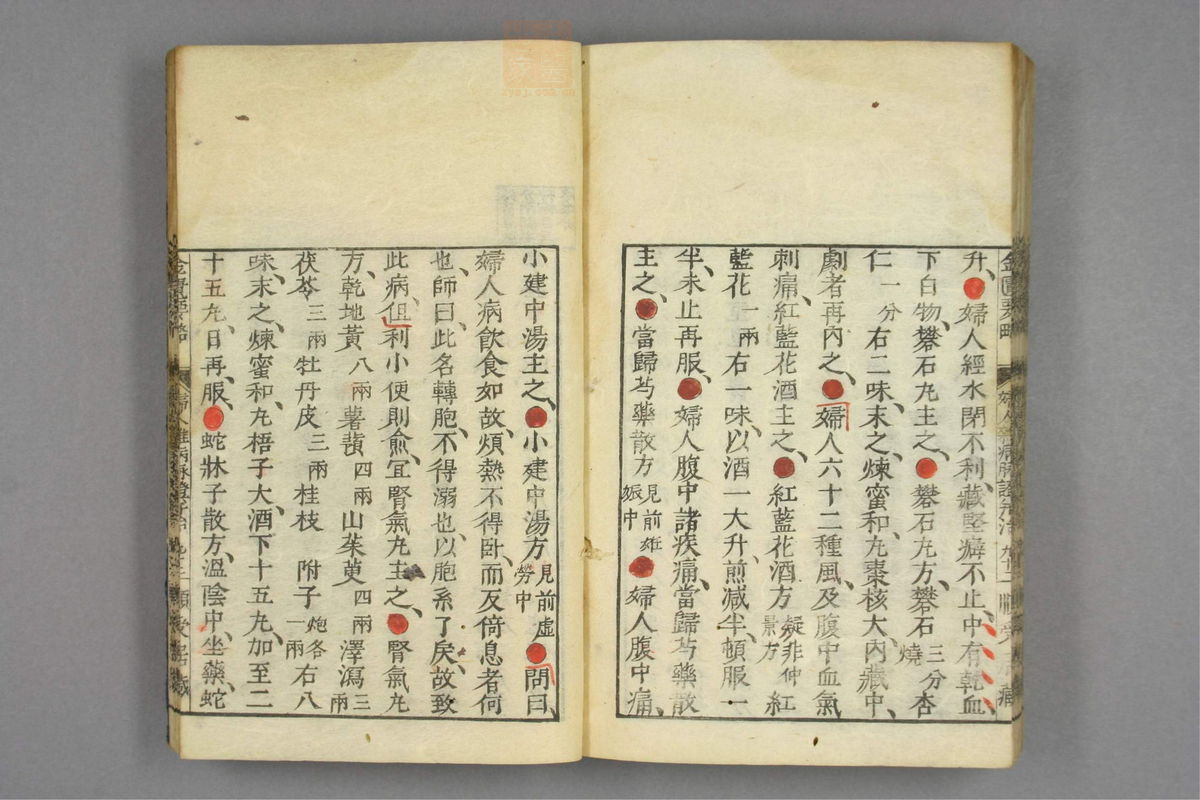 升婦人經水閉不利藏堅癖不止中有乾血
下白物礬石丸主之礬石丸方礬石三分燒杏
仁一分右二味末之煉蜜和丸棗核大內藏中
劇者再內之婦人六十二種風及腹中血氣
刺痛紅藍花酒主之紅藍花酒方疑非仲景方紅
藍花一兩右一味以酒一大升煎減半頓服一
半未止再服婦人腹中諸疾痛當歸芍藥散
主之當歸芍藥散方見前姙娠中婦人腹中痛
小建中湯主之小建中湯方見前虛勞中問曰
婦人病飲食如故煩熱不得臥而反倚息者何
也師曰此名轉胞不得溺也以胞系了戾故致
此病但利小便則愈宜腎氣丸主之腎氣丸
方乾地黃八兩薯蕷四兩山茱萸四兩澤瀉三兩
茯苓三兩牡丹皮三兩桂枝 附子炮各一兩右八
味末之煉蜜和丸梧子大酒下十五丸加至二
十五丸日再服蛇牀子散方溫陰中坐藥蛇